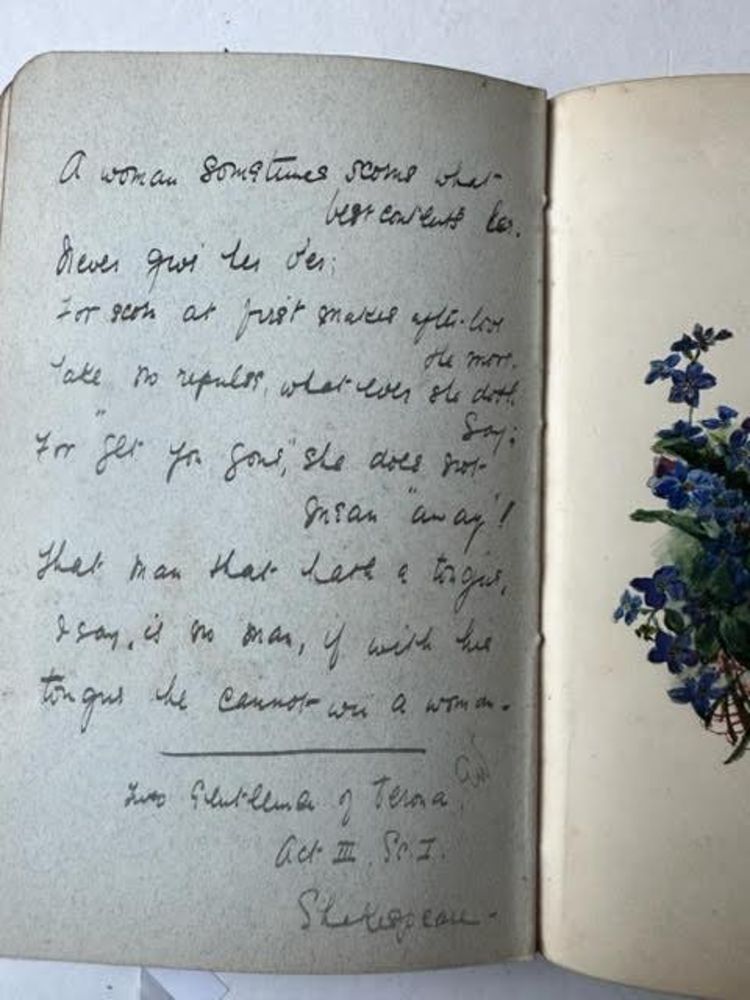 A woman sometimes scorns what
best contents her.
Never give her o'er;
For scorn at first makes after-love
the more.
Take no repulse, whatever she doth
say;
For "get you gone," she does not
mean "away"!
That man that hath a tongue,
I say, is no man, if with his
tongue he cannot win a woman.
Two Gentlemen of Verona
Act III. Sc. I.
Shakespeare -